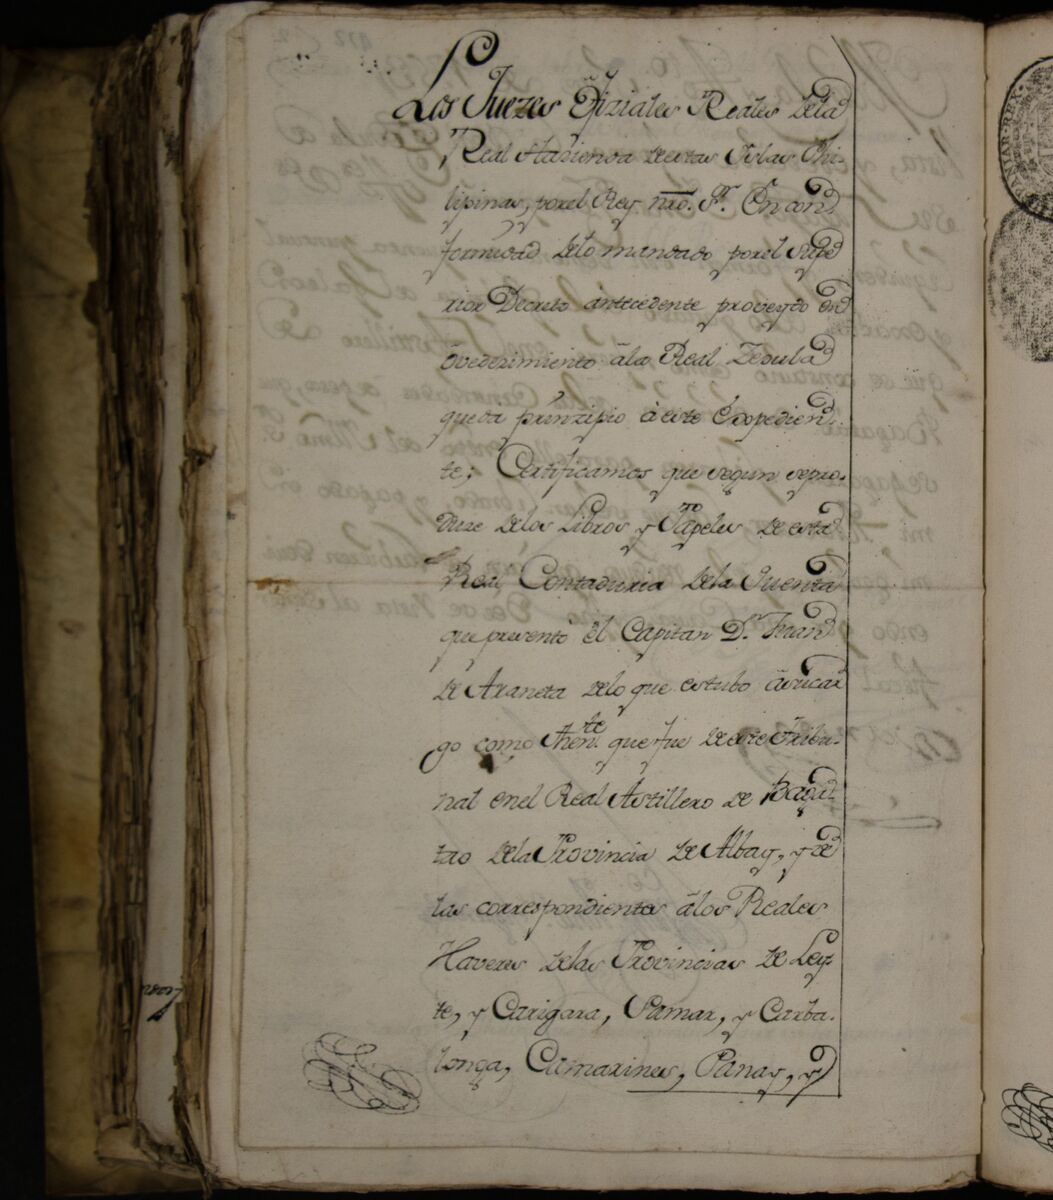 Los Juezes Ofiziales Reales dela
Real Hazienda de estas Yslas Phi-
lipinas, porel Rey nro. Sr. En con
formidad delo mandado porel Supe
rior Decreto anttecedente proveydo en
ôvedezimiento âla Real Zedula
queda prinzipio à este Expedien-
te; Certificamos que segun sepro-
duze delos Libros y Papeles de esta
Real Contaduria dela Quenta
que presentò el Capitan Dn. Juan
de Araneta delo que estubo âsucar
go como Thente. que fue de este Tribu-
nal enel Real Astillero de Baga
tao dela Provincia de Albay, y de
las correspondientes âlos Reales
Haveres delas Provincias de Ley-
te, y Carigara, Samar, y Catba-
longa, Camarines, Panay, y